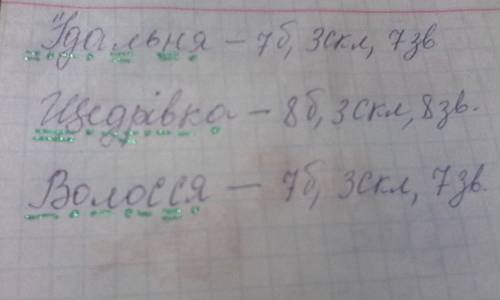 Їдальня – 7б, 3скл, 7зв
Щедрівка – 8б, 3скл, 8зв.
Волосся — 7б, 3скл, 7зв.